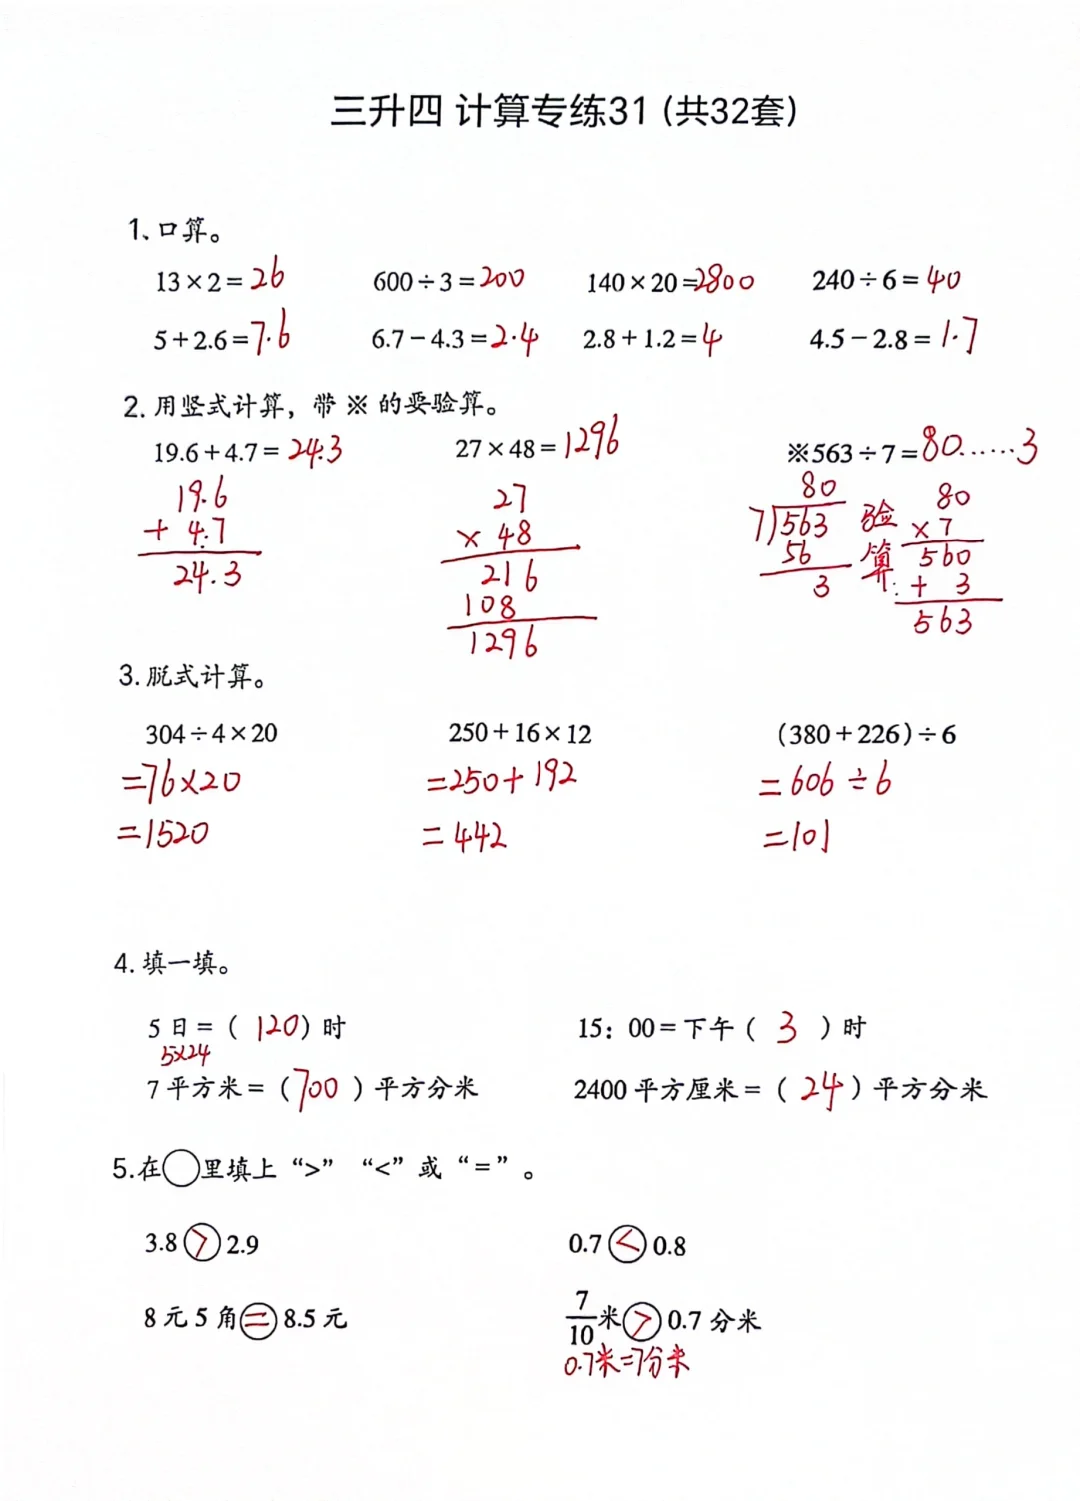 三升四 计算专练31 (共32套)
1、口算。
13×2=26 600÷3=200 140×20=2800 240÷6=40
5+2.6=7.6 6.7-4.3=2.4 2.8+1.2=4 4.5-2.8=1.7
2. 用竖式计算，带※的要验算。
19.6+4.7=24.3 27×48=1296 ※563÷7=80……3
19.6 27 80 80
+ 4.7 × 48 7)563 验 ×7
24.3 216 56 算: 560
108 3 + 3
1296 563
3. 脱式计算。
304÷4×20 250+16×12 (380+226)÷6
=76×20 =250+192 =606÷6
=1520 =442 =101
4. 填一填。
5日=(120)时 15：00=下午(3)时
5×24
7平方米=(700)平方分米 2400平方厘米=(24)平方分米
5.在○里填上“>”“<”或“=”。
3.8>2.9 0.7<0.8
8元5角=8.5元 7/10米>0.7分米
0.7米=7分米